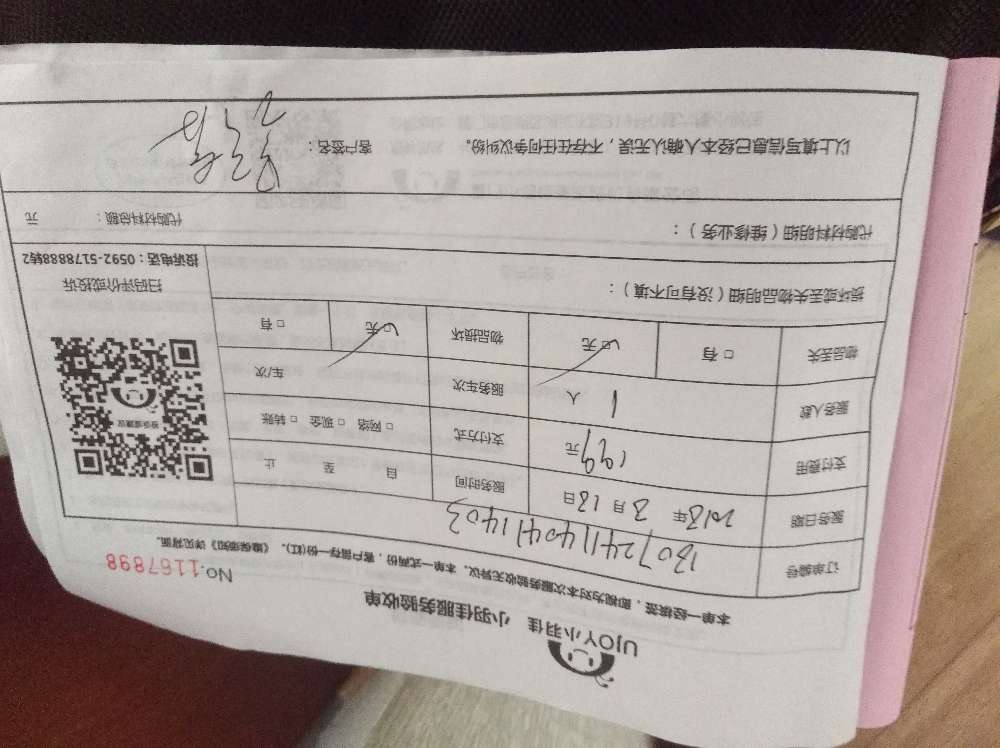 UJOY小羽佳 小羽佳服务验收单
No.1167898
本单一经核签，即视为对本次服务验收无异议。本单一式两份，客户留存一份(红)。《撤保须知》详见背面。
订单编号 1307241140411403
服务日期 2018年 3月 18日 服务时间 日 至 止
支付费用 199元 支付方式 □ 网络 □ 现金 □ 转账
服务人数 1 人 服务车次 车/次
物品丢失 □ 有 □ 无 物品损坏 □ 无 □ 有
损坏或丢失物品明细（没有可不填）：
代购材料明细（维修业务）： 代购材料总额： 元
以上填写信息已经本人确认无误，不存在任何争议纠纷。 客户签名：
扫码评价或投诉
投诉电话：0592-5178888转2